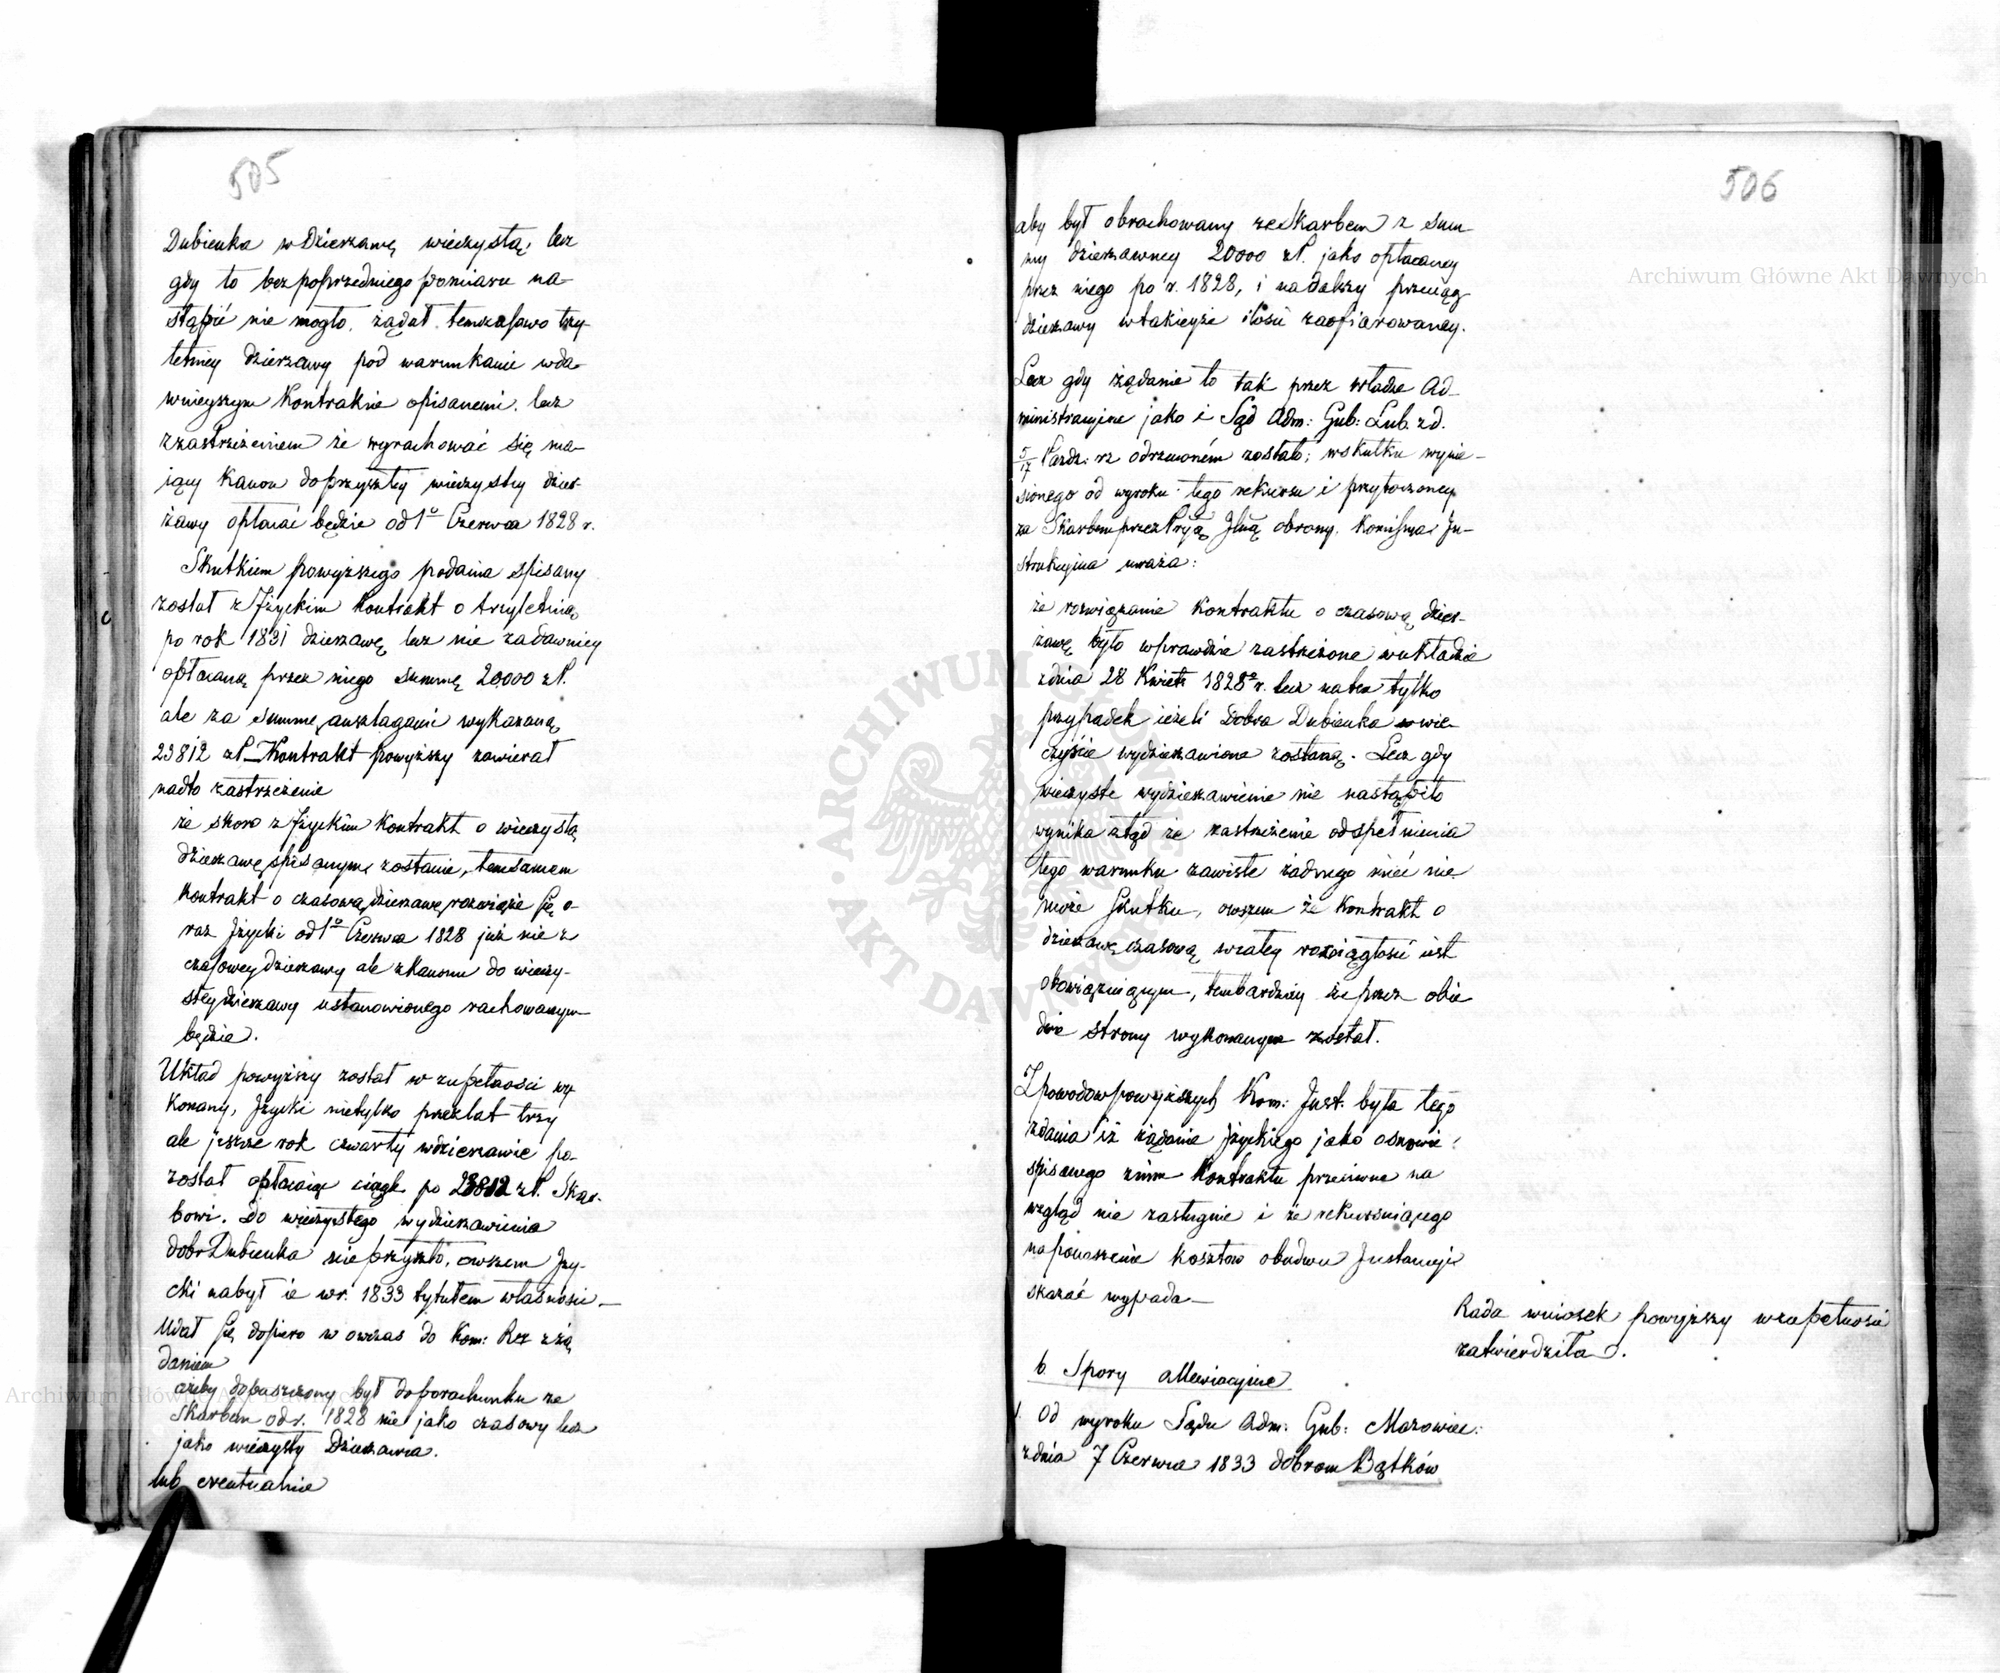 505
Dubienka w dzierzawę wieczystą, lecz
gdy to bez poprzedniego pomiaru na-
stąpić nie mogło, żądał tymczasowo trzy-
letniey dzierzawy pod warunkami w da-
wnieyszym Kontrakcie opisanemi. lecz
z zastrzeżeniem że wyrachować się ma-
iący Kanon do przyszłey wieczystey dzier-
żawy opłacać będzie od 1º Czerwca 1828 r.
Skutkiem powyższego podania spisany
został z Iżyckim Kontrakt o trzyletnią
po rok 1831 dzierzawę lecz nie za dawniey
opłacaną przez niego summę 20,000 zł.
ale za summę anszlagami wykazaną
23812 zł. Kontrakt powyższy zawierał
nadto zastrzeżenie
że skoro z Iżyckim Kontrakt o wieczystą
dzierzawę spisanym zostanie, temsamem
Kontrakt o czasową dzierzawę rozwiąże się o-
raz Iżycki od 1º Czerwca 1828 już nie z
czasowey dzierzawy ale z Kanonu do wieczy-
stey dzierzawy ustanowionego rachowanym
będzie.
Układ powyższy został w zupełności wy
konany, Iżycki nietylko przez lat trzy
ale jeszcze rok czwarty w dzierzawie po-
został opłacaiąc ciągle po 23812 zł. Skar-
bowi. Do wieczystego wydzierzawienia
dobr Dubienka nie przyszło, owszem Iży-
cki nabył ie w r. 1833 tytułem własności
Udał się dopiero w owczas do Kom: Rzą z żą
daniem
ażeby dopuszczony był do porachunku ze
Skarbem od r. 1828 nie jako czasowy lecz
jako wieczysty Dzierzawca.
lub eventualnie
506
aby był obrachowany ze Skarbem z sum-
my dzierzawney 20000 zł. jako opłacaney
przez niego po r. 1828, i na dalszy przeciąg
dzierzawy w takieyże ilości zaofiarowaney.
Lecz gdy żądanie to tak przez władze Ad-
ministracyjne jako i Sąd Adm: Gub: Lub. z d.
5/17 Paźdz: rz odrzuconém zostało; w skutku wynie-
sionego od wyroku tego rekursu i przytoczoney
za Skarbem przez obrony. Kommissya In-
strukcyina uważa:
że rozwiązanie Kontraktu o czasową dzier-
zawę było wprawdzie zastrzeżone w układzie
z dnia 28 Kwiet: 1828º r. lecz na ten tylko
przypadek ieżeli Dobra Dubienka w wie-
czyście wydzierzawione zostaną. Lecz gdy
wieczyste wydzierzawienie nie nastąpiło
wynika ztąd że zastrzeżenie od spełnienia
tego warunku zawisłe żadnego mieć nie
może skutku, owszem że Kontrakt o
dzierzawę czasową w całey rozciągłości iest
obowiązuiącym, tembardziey że przez obie
dwie strony wykonanym został.
Z powodow powyższych Kom: Inst: była tego
zdania iż żądanie Iżyckiego jako osnowie
spisanego z nim Kontraktu przeciwne na
wzgląd nie zasługuie i że rekursuiącego
na ponoszenie kosztów obudwu Instancyi
skazać wypada
Rada wniosek powyższy w zupełności
zatwierdziła.
b. Spory alleviacyine
1. Od wyroku Sądu Adm: Gub: Mazowiec:
z dnia 7 Czerwca 1833 dobrom Bątków
Archiwum Główne Akt Dawnych
Archiwum Główne Akt Dawnych
ARCHIWUM GŁÓWNE AKT DAWNYCH